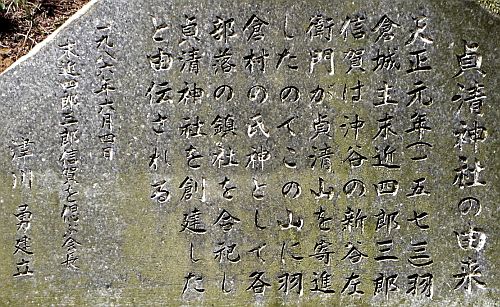 貞清神社の由来
天正元年(一五七三)羽
倉城主末近四郎三郎
信賀は沖谷の新谷左
衛門が貞清山を寄進
したのでこの山に羽
倉村の氏神として各
部落の鎮社を合祀し
貞清神社を創建した
と由伝される
一九八六年六月四日
末近四郎三郎信賀を偲ぶ会長
津川 勇建立